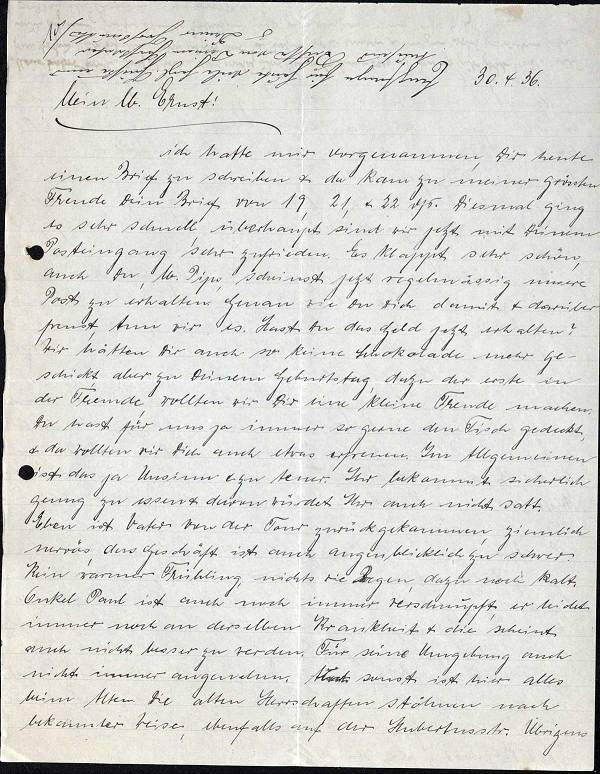 30.4.36.
Mein lb. Ernst!
ich hatte mir vorgenommen, Dir heute
einen Brief zu schreiben & da kam zu meiner grössten
Freude Dein Brief vom 19, 21, & 22 ds. Diesmal ging
es sehr schnell, überhaupt sind wir jetzt mit Deinem
Posteingang sehr zufrieden. Es klappt sehr schön,
auch Du, lb. Pips, scheinst jetzt regelmässig unsere
Post zu erhalten. Genau wie Du Dich damit & darüber
freust tun wir es. Hast Du das Geld jetzt erhalten?
Wir hätten Dir auch so keine Schokolade mehr ge-
schickt aber zu Deinem Geburtstag dazu der erste in
der Fremde, wollten wir Dir eine kleine Freude machen.
Du hast für uns ja immer so gerne den Tisch gedeckt,
& da wollten wir Dich auch etwas erfreuen. Im Allgemeinen
ist das ja Unsinn & zu teuer. Ihr bekommt sicherlich
genug zu essen & davon würdet Ihr auch nicht satt.
Eben ist Vater von der Tour zurückgekommen ziemlich
nervös, das Geschäft ist auch augenblicklich zu schwer.
Kein warmer Frühling nichts wie Regen, dazu noch kalt.
Onkel Paul ist auch noch immer verschnupft, er leidet
immer noch an derselben Krankheit & die scheint
auch nicht besser zu werden. Für seine Umgebung auch
nicht immer angenehm. sonst ist hier alles
beim Alten. Die alten Herrschaften stöhnen nach
bekannter Weise, ebenfalls auf der Hubertusstr. Übrigens